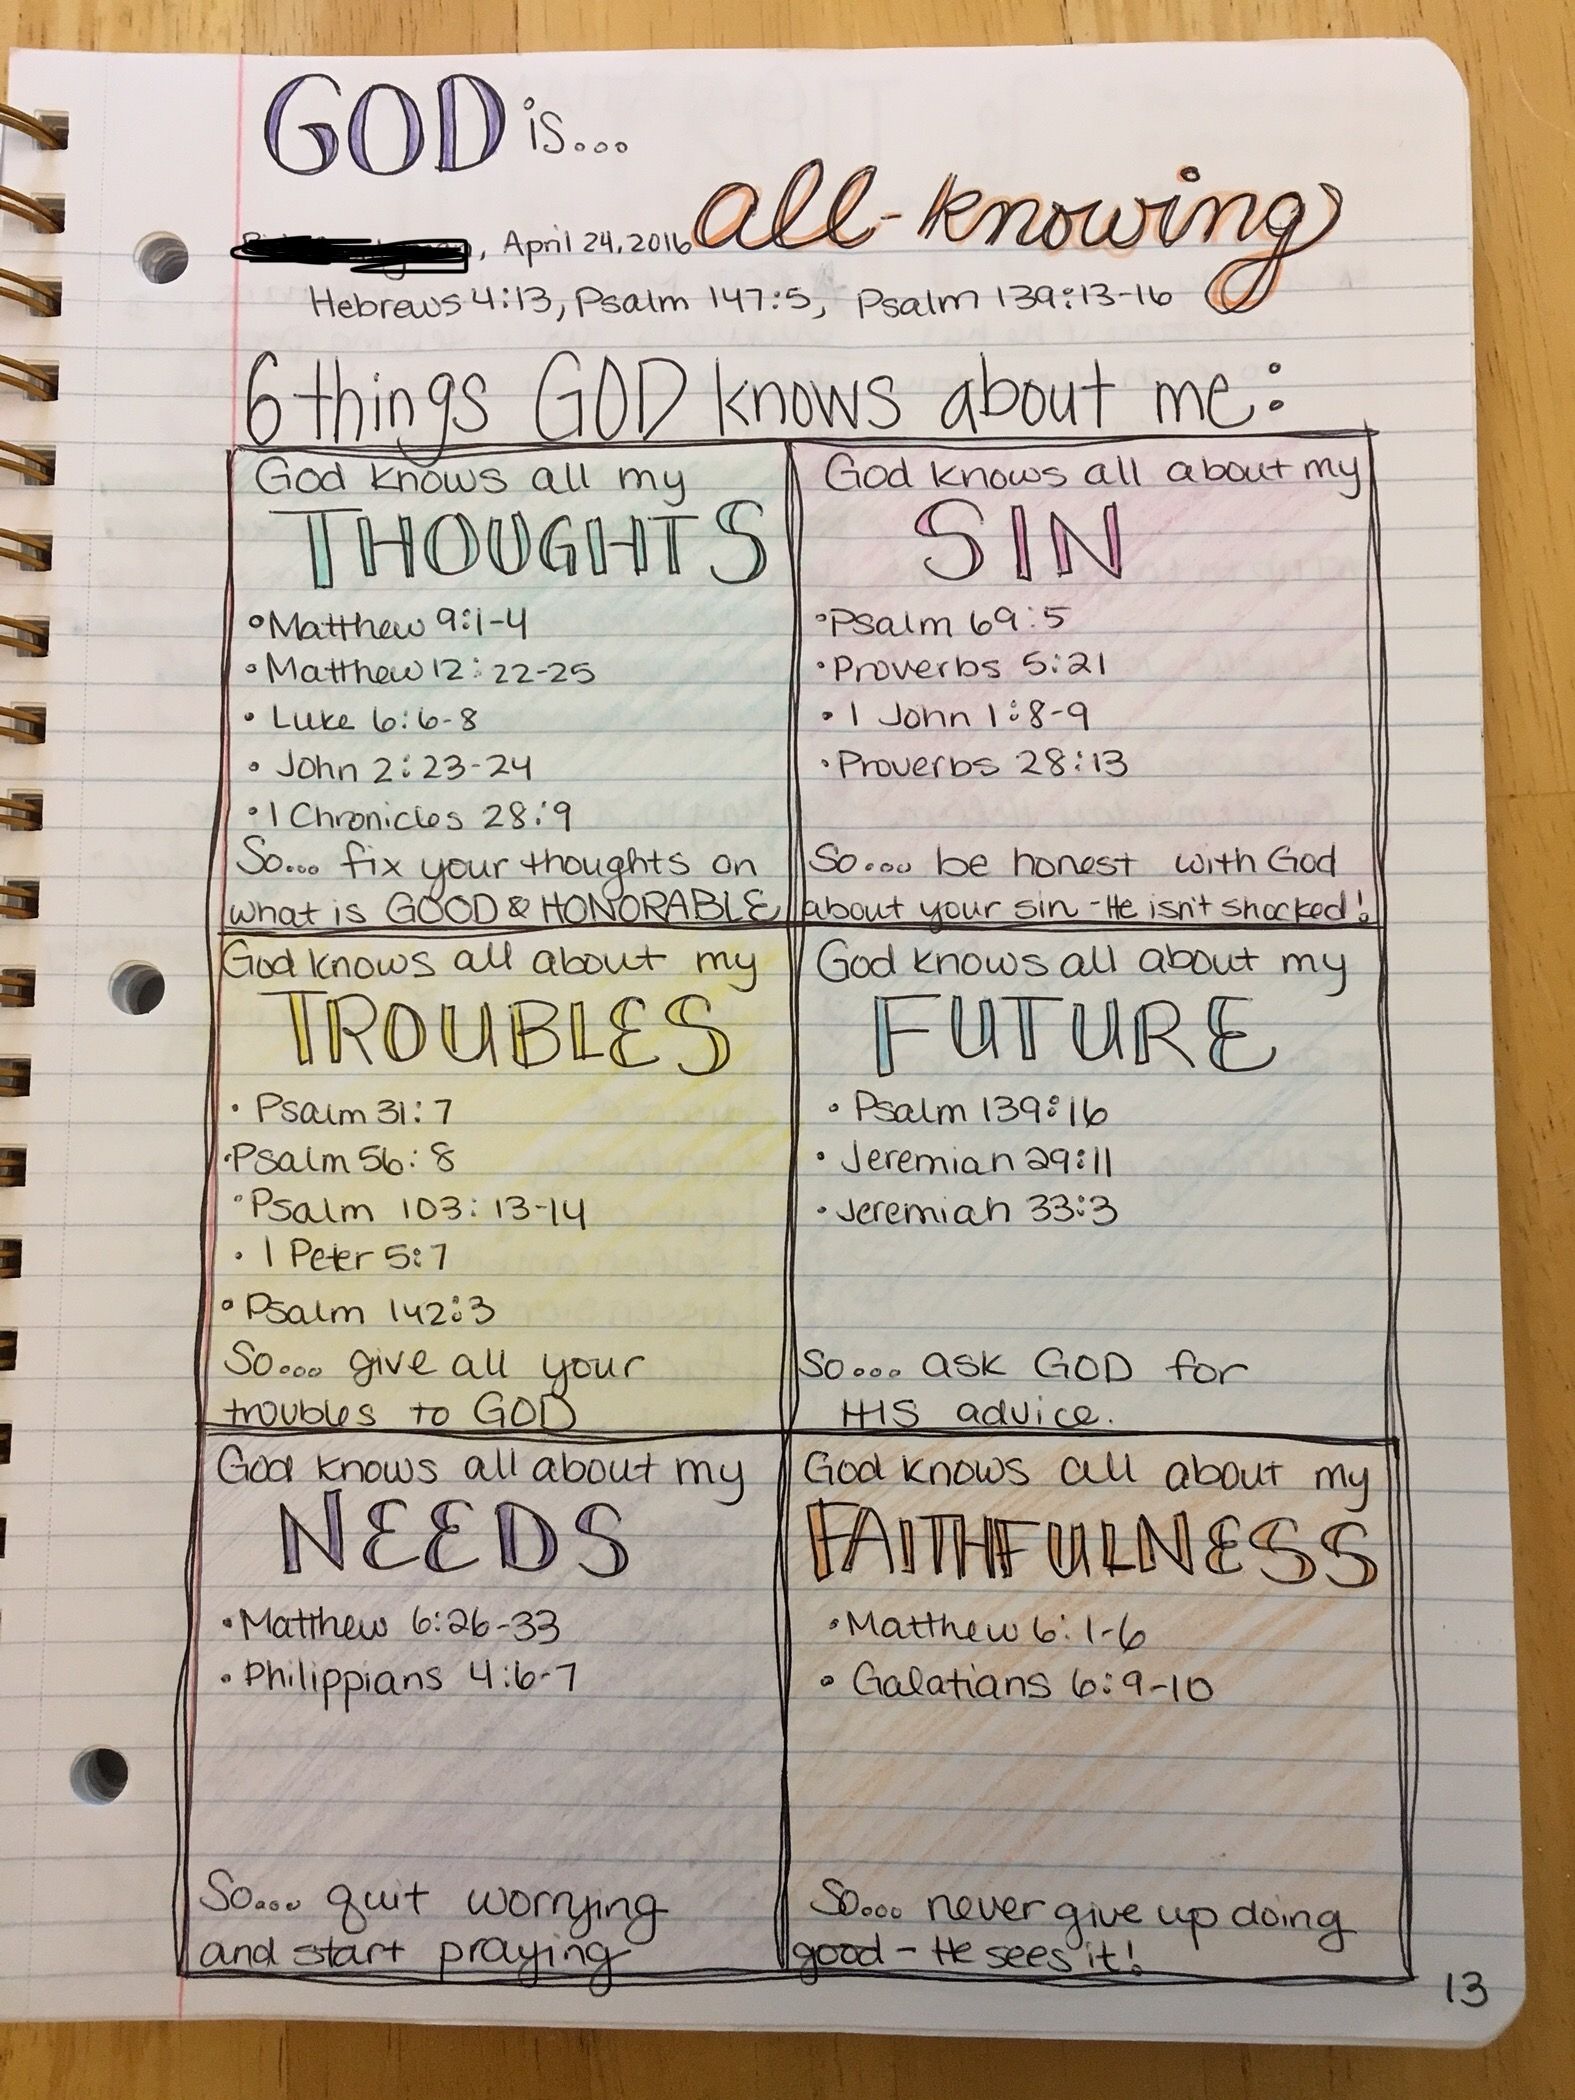 GOD is...
all-knowing
, April 24, 2016
Hebrews 4:13, Psalm 147:5, Psalm 139:13-16
6 things GOD knows about me:
God knows all my
THOUGHTS
• Matthew 9:1-4
• Matthew 12:22-25
• Luke 6:6-8
• John 2:23-24
• 1 Chronicles 28:9
So... fix your thoughts on
what is GOOD & HONORABLE
God knows all about my
SIN
• Psalm 69:5
• Proverbs 5:21
• 1 John 1:8-9
• Proverbs 28:13
So.... be honest with God
about your sin - He isn't shocked!
God knows all about my
TROUBLES
• Psalm 31:7
• Psalm 56:8
• Psalm 103:13-14
• 1 Peter 5:7
• Psalm 142:3
So.... give all your
troubles to GOD
God knows all about my
FUTURE
• Psalm 139:16
• Jeremiah 29:11
• Jeremiah 33:3
So.... ask GOD for
HIS advice.
God knows all about my
NEEDS
• Matthew 6:26-33
• Philippians 4:6-7
So.... quit worrying
and start praying
God knows all about my
FAITHFULNESS
• Matthew 6:1-6
• Galatians 6:9-10
So.... never give up doing
good - He sees it!
13